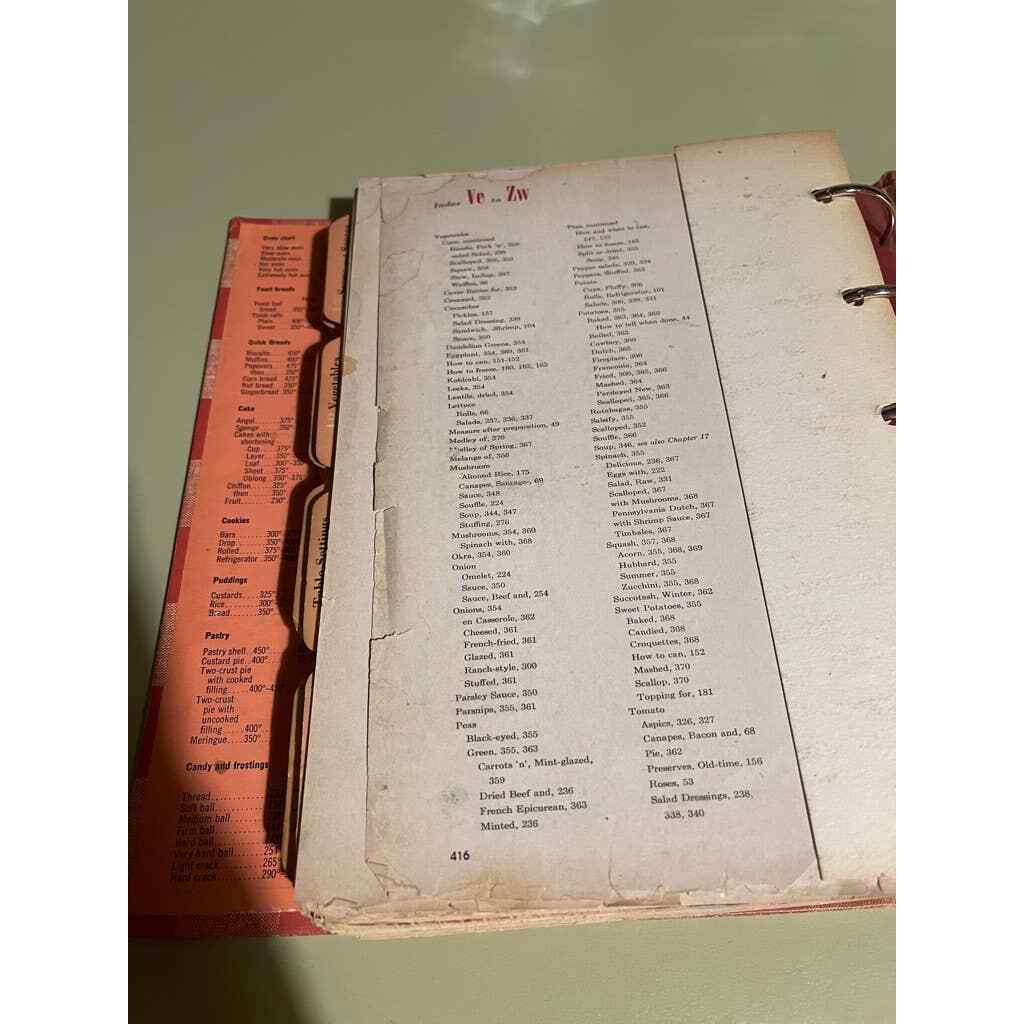 Oven chart
Very slow oven
Slow oven
Moderate oven
Hot oven
Very hot oven
Extremely hot oven
Yeast breads
Yeast loaf
bread
Yeast rolls
Plain
Sweet
Quick Breads
Biscuits
Muffins
Popovers
then
Corn bread
Nut bread
Gingerbread
Cake
Angel ....375°
Sponge
Cakes with
shortening
Cup ....375°
Layer ...350°
Loaf
Sheet ...375°
Oblong
Chiffon ....325°
then ....350°
Fruit
Cookies
Bars ....... 300°
Drop
Rolled .....375°
Refrigerator
Puddings
Custards ....325°
Rice
Bread ......350°
Pastry
Pastry shell..450°
Custard pie..400°
Two-crust pie
with cooked
filling ....400°
Two-crust
pie with
uncooked
filling ....400°
Meringue...350°
Candy and frostings
Thread
Soft ball
Medium ball
Firm ball
Hard ball
Very hard ball
Light crack......265°
Hard crack.......290°
Vegetables
Table Settings
Index Ve to Zw
Vegetables
Corn, continued
Scalloped,
Squaw, 358
Waffles, 96
Creamed, 352
Cucumber
Pickles, 157
Salad Dressing, 339
Sandwich, Shrimp, 104
Sauce, 350
Dandelion Greens, 354
Eggplant, 354, 360, 361
How to can, 151-152
How to freeze, 160, 162, 163
Kohlrabi, 354
Leeks, 354
Lentils, dried, 354
Lettuce
Rolls, 66
Salads, 237, 336, 337
Measure after preparation, 49
Medley of, 276
Medley of Spring, 367
Melange of, 358
Mushroom
Almond Rice, 175
Canapes, Sausage, 69
Sauce, 348
Souffle, 224
Soup, 344, 347
Stuffing, 276
Mushrooms, 354, 360
Spinach with, 368
Okra, 354, 360
Onion
Omelet, 224
Sauce, 350
Sauce, Beef and, 254
Onions, 354
en Casserole, 362
Cheesed, 361
French-fried, 361
Glazed, 361
Ranch-style, 300
Stuffed, 361
Parsley Sauce, 350
Parsnips, 355, 361
Peas
Black-eyed, 355
Green, 355, 363
Carrots 'n', Mint-glazed,
359
Dried Beef and, 236
French Epicurean, 363
Minted, 236
Peas, continued
How and when to can,
147, 152
How to freeze, 163
Split or dried, 355
Soup, 345
Peppers, Stuffed, 363
Potato
Cups, Fluffy, 306
Rolls, Refrigerator, 101
Potatoes, 355
Baked, 363, 364, 365
How to tell when done, 44
Boiled, 363
Cowboy, 300
Dutch, 365
Fireplace, 306
Franconia, 364
Fried, 300, 365, 366
Mashed, 364
Parsleyed New, 363
Scalloped, 365, 366
Rutabagas, 355
Salsify, 355
Scalloped, 352
Souffle, 366
Soup, 346, see also Chapter 17
Spinach, 355
Delicious, 236, 367
Eggs with, 222
Salad, Raw, 331
Scalloped, 367
with Mushrooms, 368
Pennsylvania Dutch, 367
with Shrimp Sauce, 367
Timbales, 367
Squash, 357, 368
Acorn, 355, 368, 369
Hubbard, 355
Summer, 355
Zucchini, 355, 368
Succotash, Winter, 362
Sweet Potatoes, 355
Baked, 368
Candied, 368
Croquettes, 368
How to can, 152
Mashed, 370
Scallop, 370
Topping for, 181
Tomato
Aspics, 326, 327
Canapes, Bacon and, 68
Pie, 362
Preserves, Old-time, 156
Roses, 53
Salad Dressings, 238,
338, 340
416